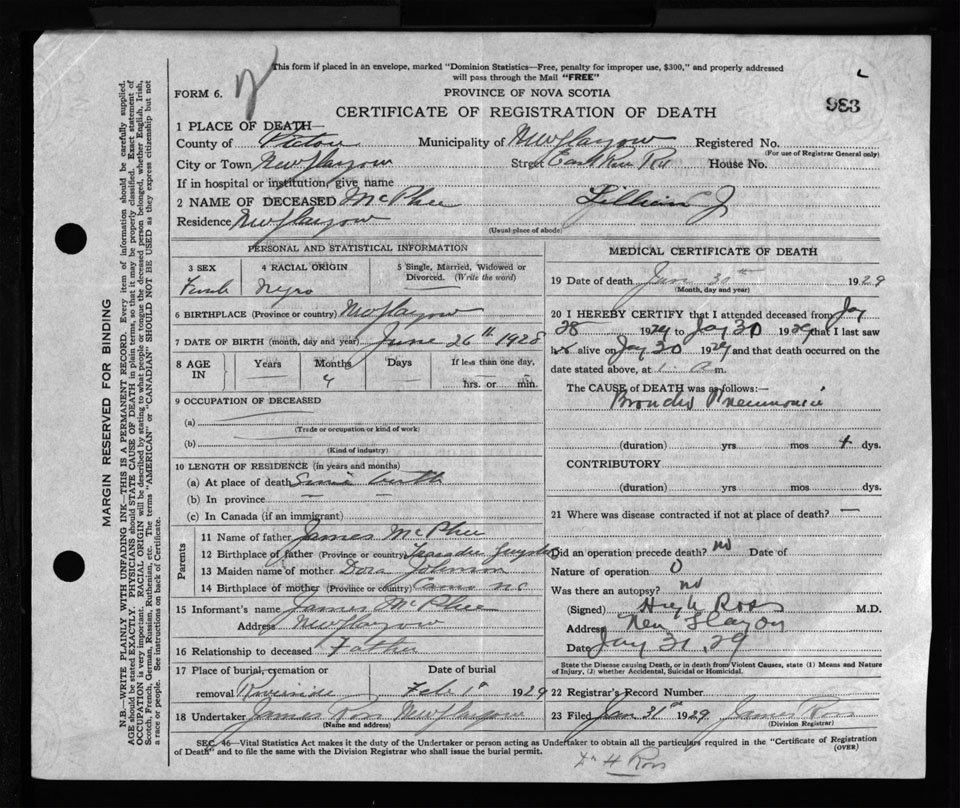 This form if placed in an envelope, marked "Dominion Statistics—Free, penalty for improper use, $300," and properly addressed
will pass through the Mail "FREE"
FORM 6.
PROVINCE OF NOVA SCOTIA
983
CERTIFICATE OF REGISTRATION OF DEATH
1 PLACE OF DEATH—
County of Pictou Municipality of New Glasgow Registered No.
(For use of Registrar General only)
City or Town New Glasgow Street East River Rd House No.
If in hospital or institution, give name
2 NAME OF DECEASED McPhee Lillian J
Residence New Glasgow
(Usual place of abode)
PERSONAL AND STATISTICAL INFORMATION
3 SEX
4 RACIAL ORIGIN
5 Single, Married, Widowed or
Divorced. (Write the word)
Female Negro
6 BIRTHPLACE (Province or country) New Glasgow
7 DATE OF BIRTH (month, day and year) June 26th 1928
8 AGE
IN
Years
Months
Days
If less than one day,
hrs. or min.
9 OCCUPATION OF DECEASED
(a)
(Trade or occupation or kind of work)
(b)
(Kind of industry)
10 LENGTH OF RESIDENCE (in years and months)
(a) At place of death Since birth
(b) In province — —
(c) In Canada (if an immigrant)
Parents
11 Name of father James McPhee
12 Birthplace of father (Province or country)
13 Maiden name of mother Dora Johnson
14 Birthplace of mother (Province or country)
15 Informant's name James McPhee
Address New Glasgow
16 Relationship to deceased Father
17 Place of burial, cremation or
removal Riverside
Date of burial
Feb 1st 1929
18 Undertaker James Ross New Glasgow
(Name and address)
MEDICAL CERTIFICATE OF DEATH
19 Date of death 30th 1929
(Month, day and year)
20 I HEREBY CERTIFY that I attended deceased from Jay
28 1929 to Jay 30 1929 that I last saw
her alive on Jay 30 1929 and that death occurred on the
date stated above, at 1 a m.
The CAUSE of DEATH was as follows:—
Broncho Pneumonia
(duration) yrs mos 4 dys.
CONTRIBUTORY
(duration) yrs mos dys.
21 Where was disease contracted if not at place of death? —
Did an operation precede death? no Date of
Nature of operation 0
Was there an autopsy? no
(Signed) Hugh Ross M.D.
Address New Glasgow
Date Jay 31, 29
State the Disease causing Death, or in death from Violent Causes, state (1) Means and Nature
of Injury, (2) whether Accidental, Suicidal or Homicidal.
22 Registrar's Record Number
23 Filed Jan 31st 1929 James Ross
(Division Registrar)
SEC. 46—Vital Statistics Act makes it the duty of the Undertaker or person acting as Undertaker to obtain all the particulars required in the "Certificate of Registration
of Death" and to file the same with the Division Registrar who shall issue the burial permit.
(OVER)
Dr H Ross
MARGIN RESERVED FOR BINDING
N.B.—WRITE PLAINLY WITH UNFADING INK—THIS IS A PERMANENT RECORD. Every item of information should be carefully supplied.
AGE should be stated EXACTLY. PHYSICIANS should STATE CAUSE OF DEATH in plain terms, so that it may be properly classified. Exact statement of
OCCUPATION is very important. RACIAL ORIGIN will be described by stating to what people or tongue the deceased person belonged, whether English, Irish,
Scotch, French, German, Russian, Ruthenian, etc. The terms "AMERICAN" or "CANADIAN" SHOULD NOT BE USED as they express citizenship but not
a race or people. See instructions on back of Certificate.